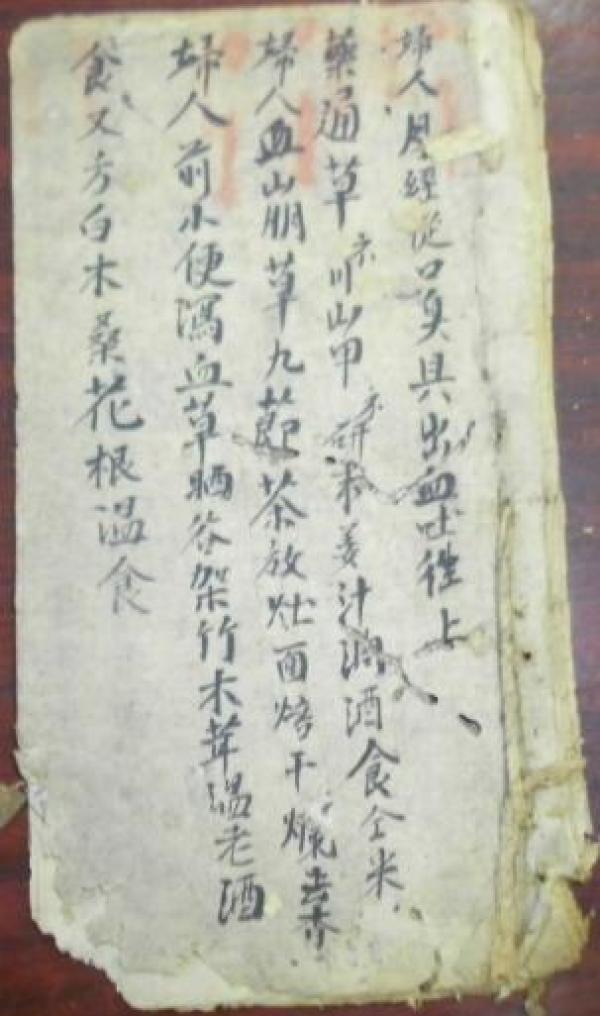 婦人月經從口臭具出血吐徃上
藥通草 川山甲 研末姜汁調酒食仝米
婦人血山崩草九節茶放灶面焙干燥
婦人前小便瀉血草晒谷架竹木茸温老酒
食又方白木桑花根温食